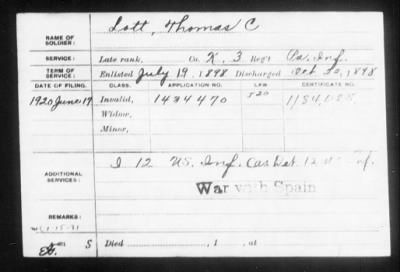 NAME OF SOLDIER: Lott, Thomas C
SERVICE: Late rank, Co. K. 3 Reg't Inf.
TERM OF SERVICE: Enlisted July 19, 1898 Discharged Oct 22, 1898
DATE OF FILING. CLASS. APPLICATION NO. LAW CERTIFICATE NO.
1920 June 17 Invalid, 1434470
Widow,
Minor,
ADDITIONAL SERVICES: I 12 U.S. Inf. Cas Det. 12
War with Spain
REMARKS:
S Died , 1 , at